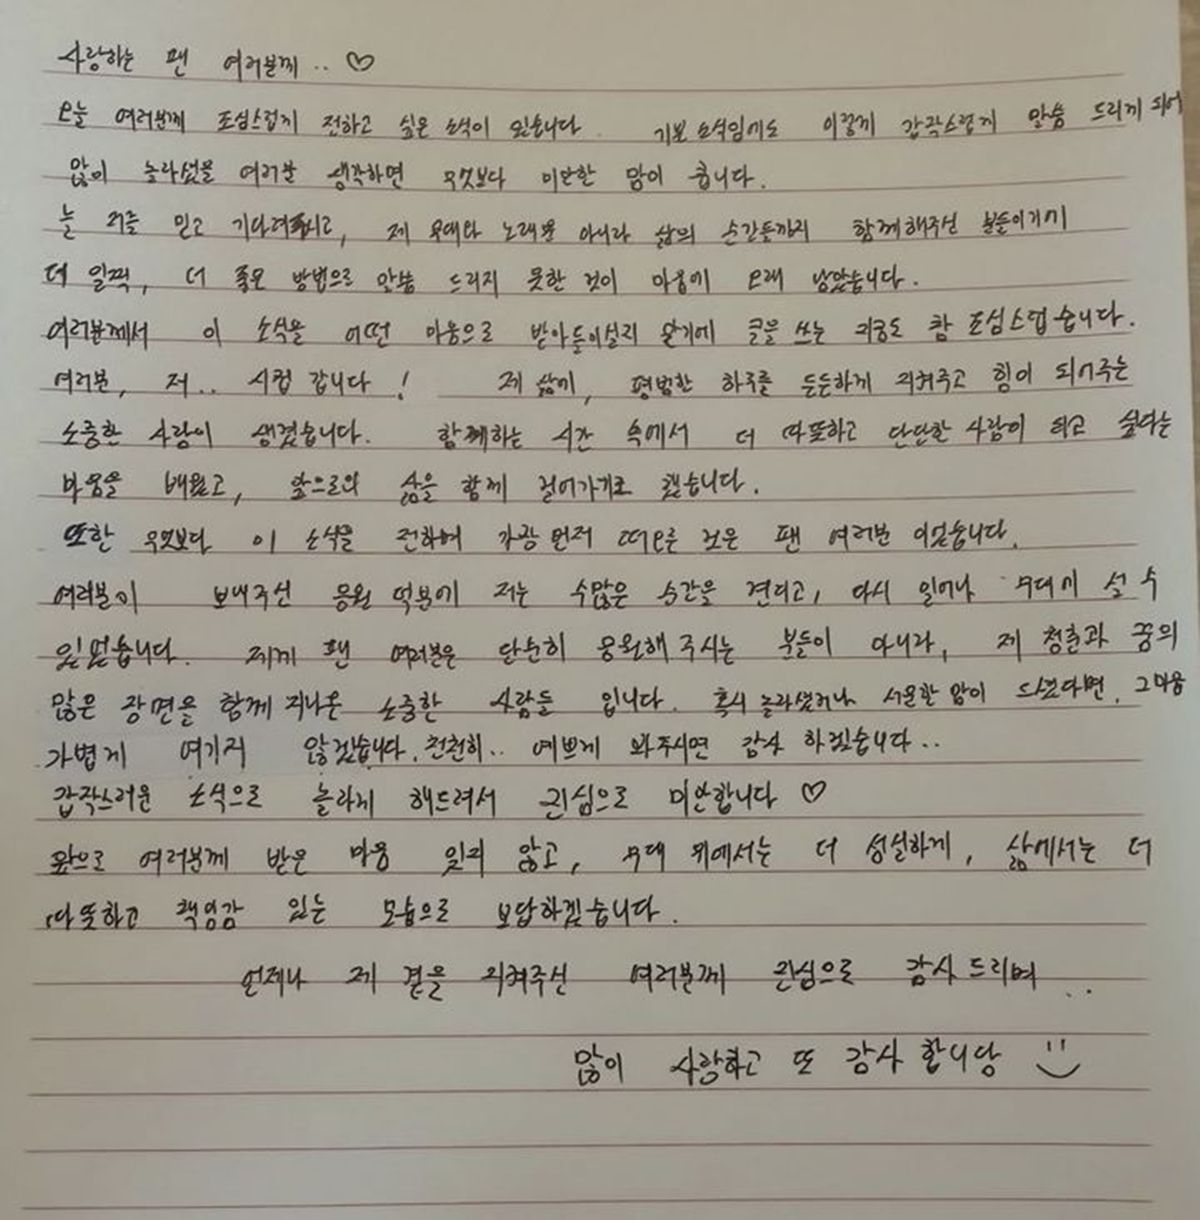 사랑하는 팬 여러분께.. ♡
오늘 여러분께 조심스럽게 전하고 싶은 소식이 있습니다. 기쁜 소식임에도 이렇게 갑작스럽게 말씀 드리게 되어
많이 놀라셨을 여러분 생각하면 무엇보다 미안한 맘이 큽니다.
늘 저를 믿고 기다려주시고, 제 무대와 노래뿐 아니라 삶의 순간들까지 함께해주신 분들이기에
더 일찍, 더 좋은 방법으로 말씀 드리지 못한 것이 마음에 오래 남았습니다.
여러분께서 이 소식을 어떤 마음으로 받아들이실지 알기에 글을 쓰는 지금도 참 조심스럽습니다.
여러분, 저.. 시집 갑니다! 제 삶에, 평범한 하루를 든든하게 지켜주고 힘이 되어주는
소중한 사람이 생겼습니다. 함께하는 시간 속에서 더 따뜻하고 단단한 사람이 되고 싶다는
마음을 배웠고, 앞으로의 삶을 함께 걸어가기로 했습니다.
또한 무엇보다 이 소식을 전하며 가장 먼저 떠오른 것은 팬 여러분 이었습니다.
여러분이 보내주신 응원 덕분에 저는 수많은 순간을 견디고, 다시 일어나 무대에 설 수
있었습니다. 저에게 팬 여러분은 단순히 응원해 주시는 분들이 아니라, 제 청춘과 꿈의
많은 장면을 함께 지나온 소중한 사람들 입니다. 혹시 놀라셨거나 서운한 맘이 드셨다면, 그 마음
가볍게 여기지 않겠습니다. 천천히.. 예쁘게 봐주시면 감사 하겠습니다..
갑작스러운 소식으로 놀라게 해드려서 진심으로 미안합니다 ♡
앞으로 여러분께 받은 마음 잊지 않고, 무대 위에서는 더 성실하게, 삶에서는 더
따뜻하고 책임감 있는 모습으로 보답하겠습니다.
언제나 제 곁을 지켜주신 여러분께 진심으로 감사 드리며..
많이 사랑하고 또 감사 합니당 :)